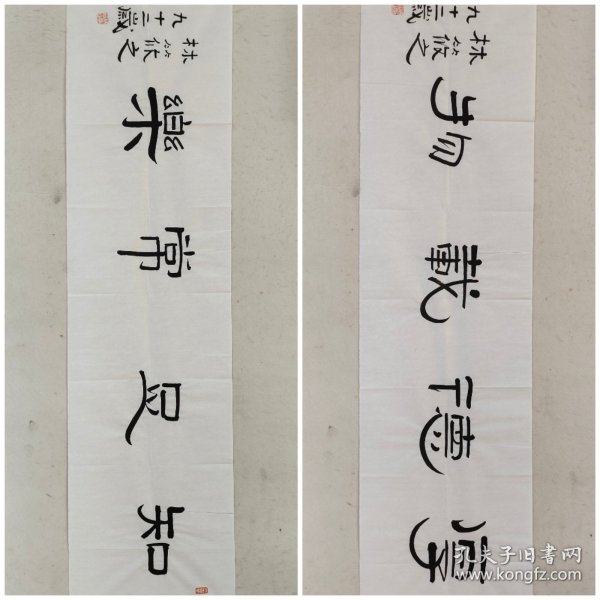 知足常樂
林筱之
九十三歲
厚德載物
林筱之
九十三歲
孔夫子旧書网
www.kongfz.com